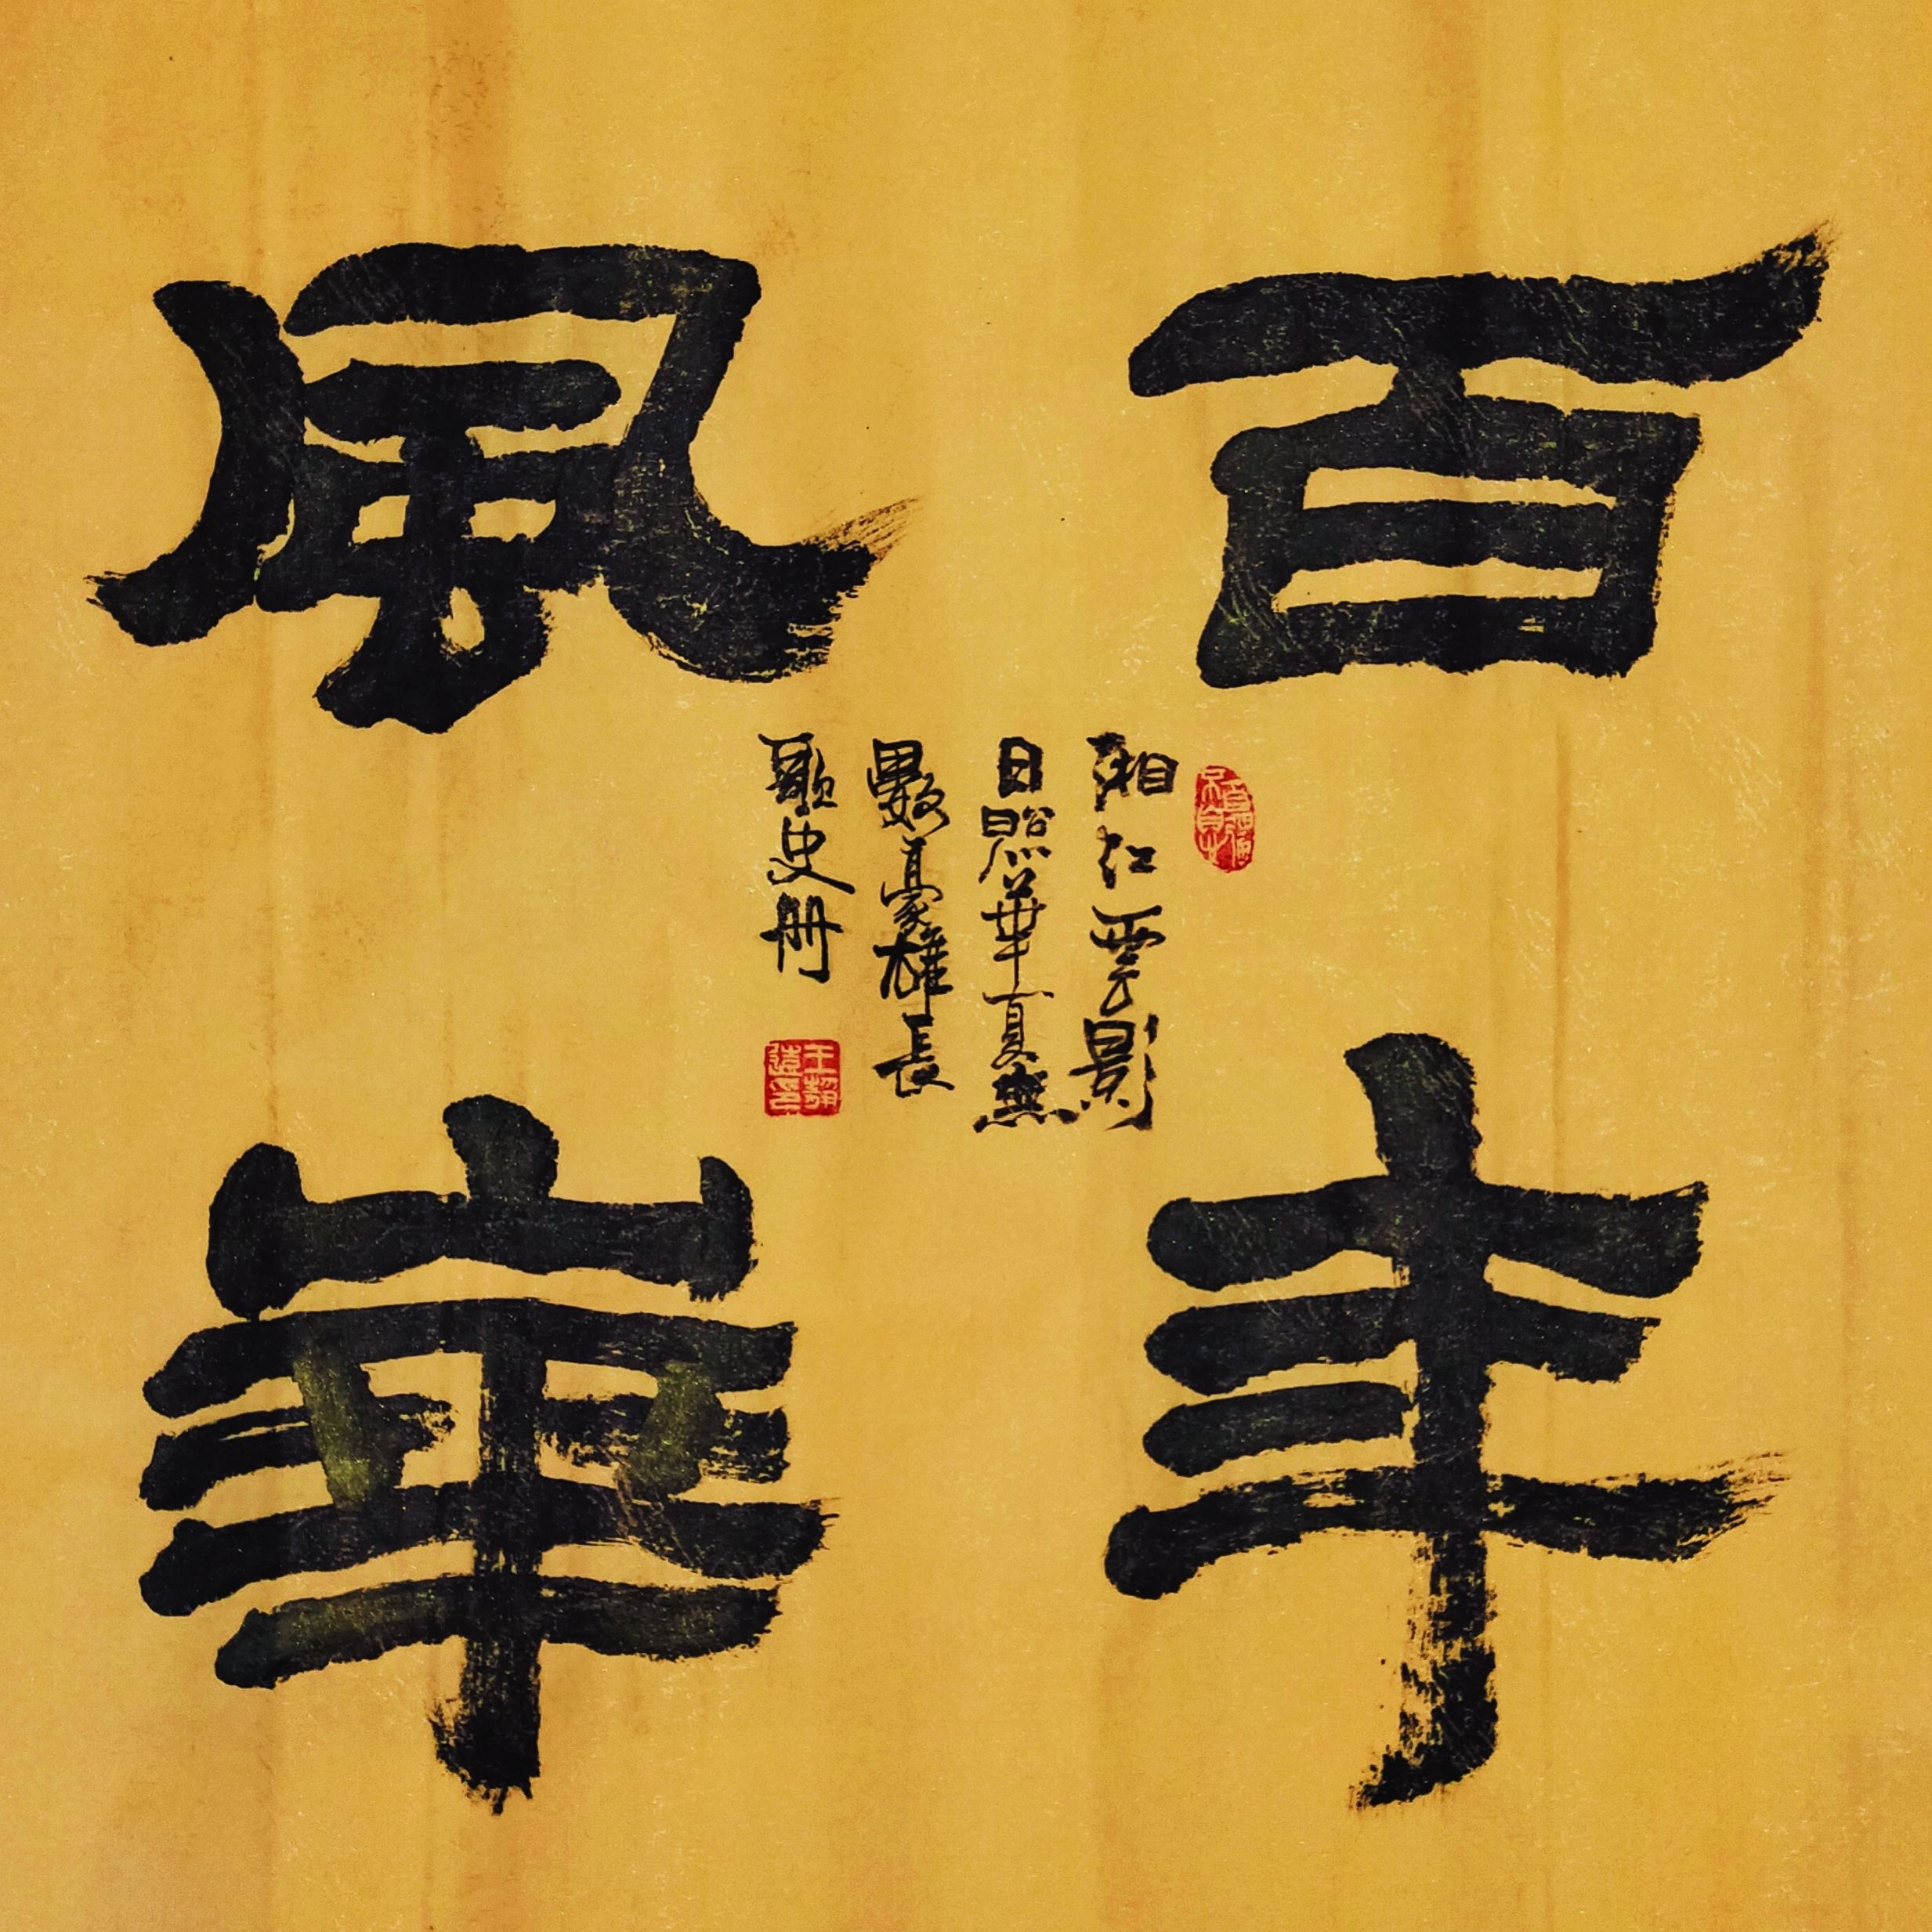 百年
風華
湘江雲影
日照華夏無
數豪雄長
歌史册